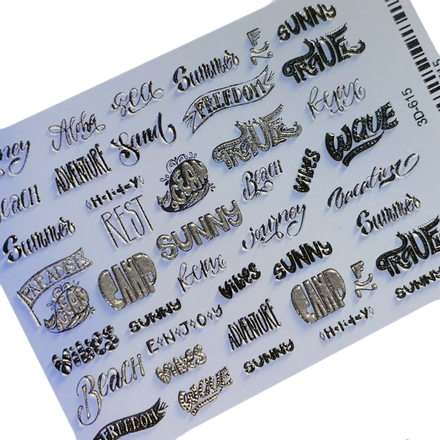 SUNNY
Summer
Sea
TRUE
FREEDOM
Aloha
Relax
Sand
TRUE
WAVE
ADVENTURE
OCEAN
BEACH
Vacation
Beach
HoliDaY
REST
SUNNY
Summer
Summer
Relax
PARADISE
CAMP
VIBES
SUNNY
TRUE
OCEAN
CAMP
SUNNY
SUNNY
ENJOY
ADVENTURE
HoliDaY
VIBES
VIBES
SUNNY
Beach
TRUE
FREEDOM
3D-615